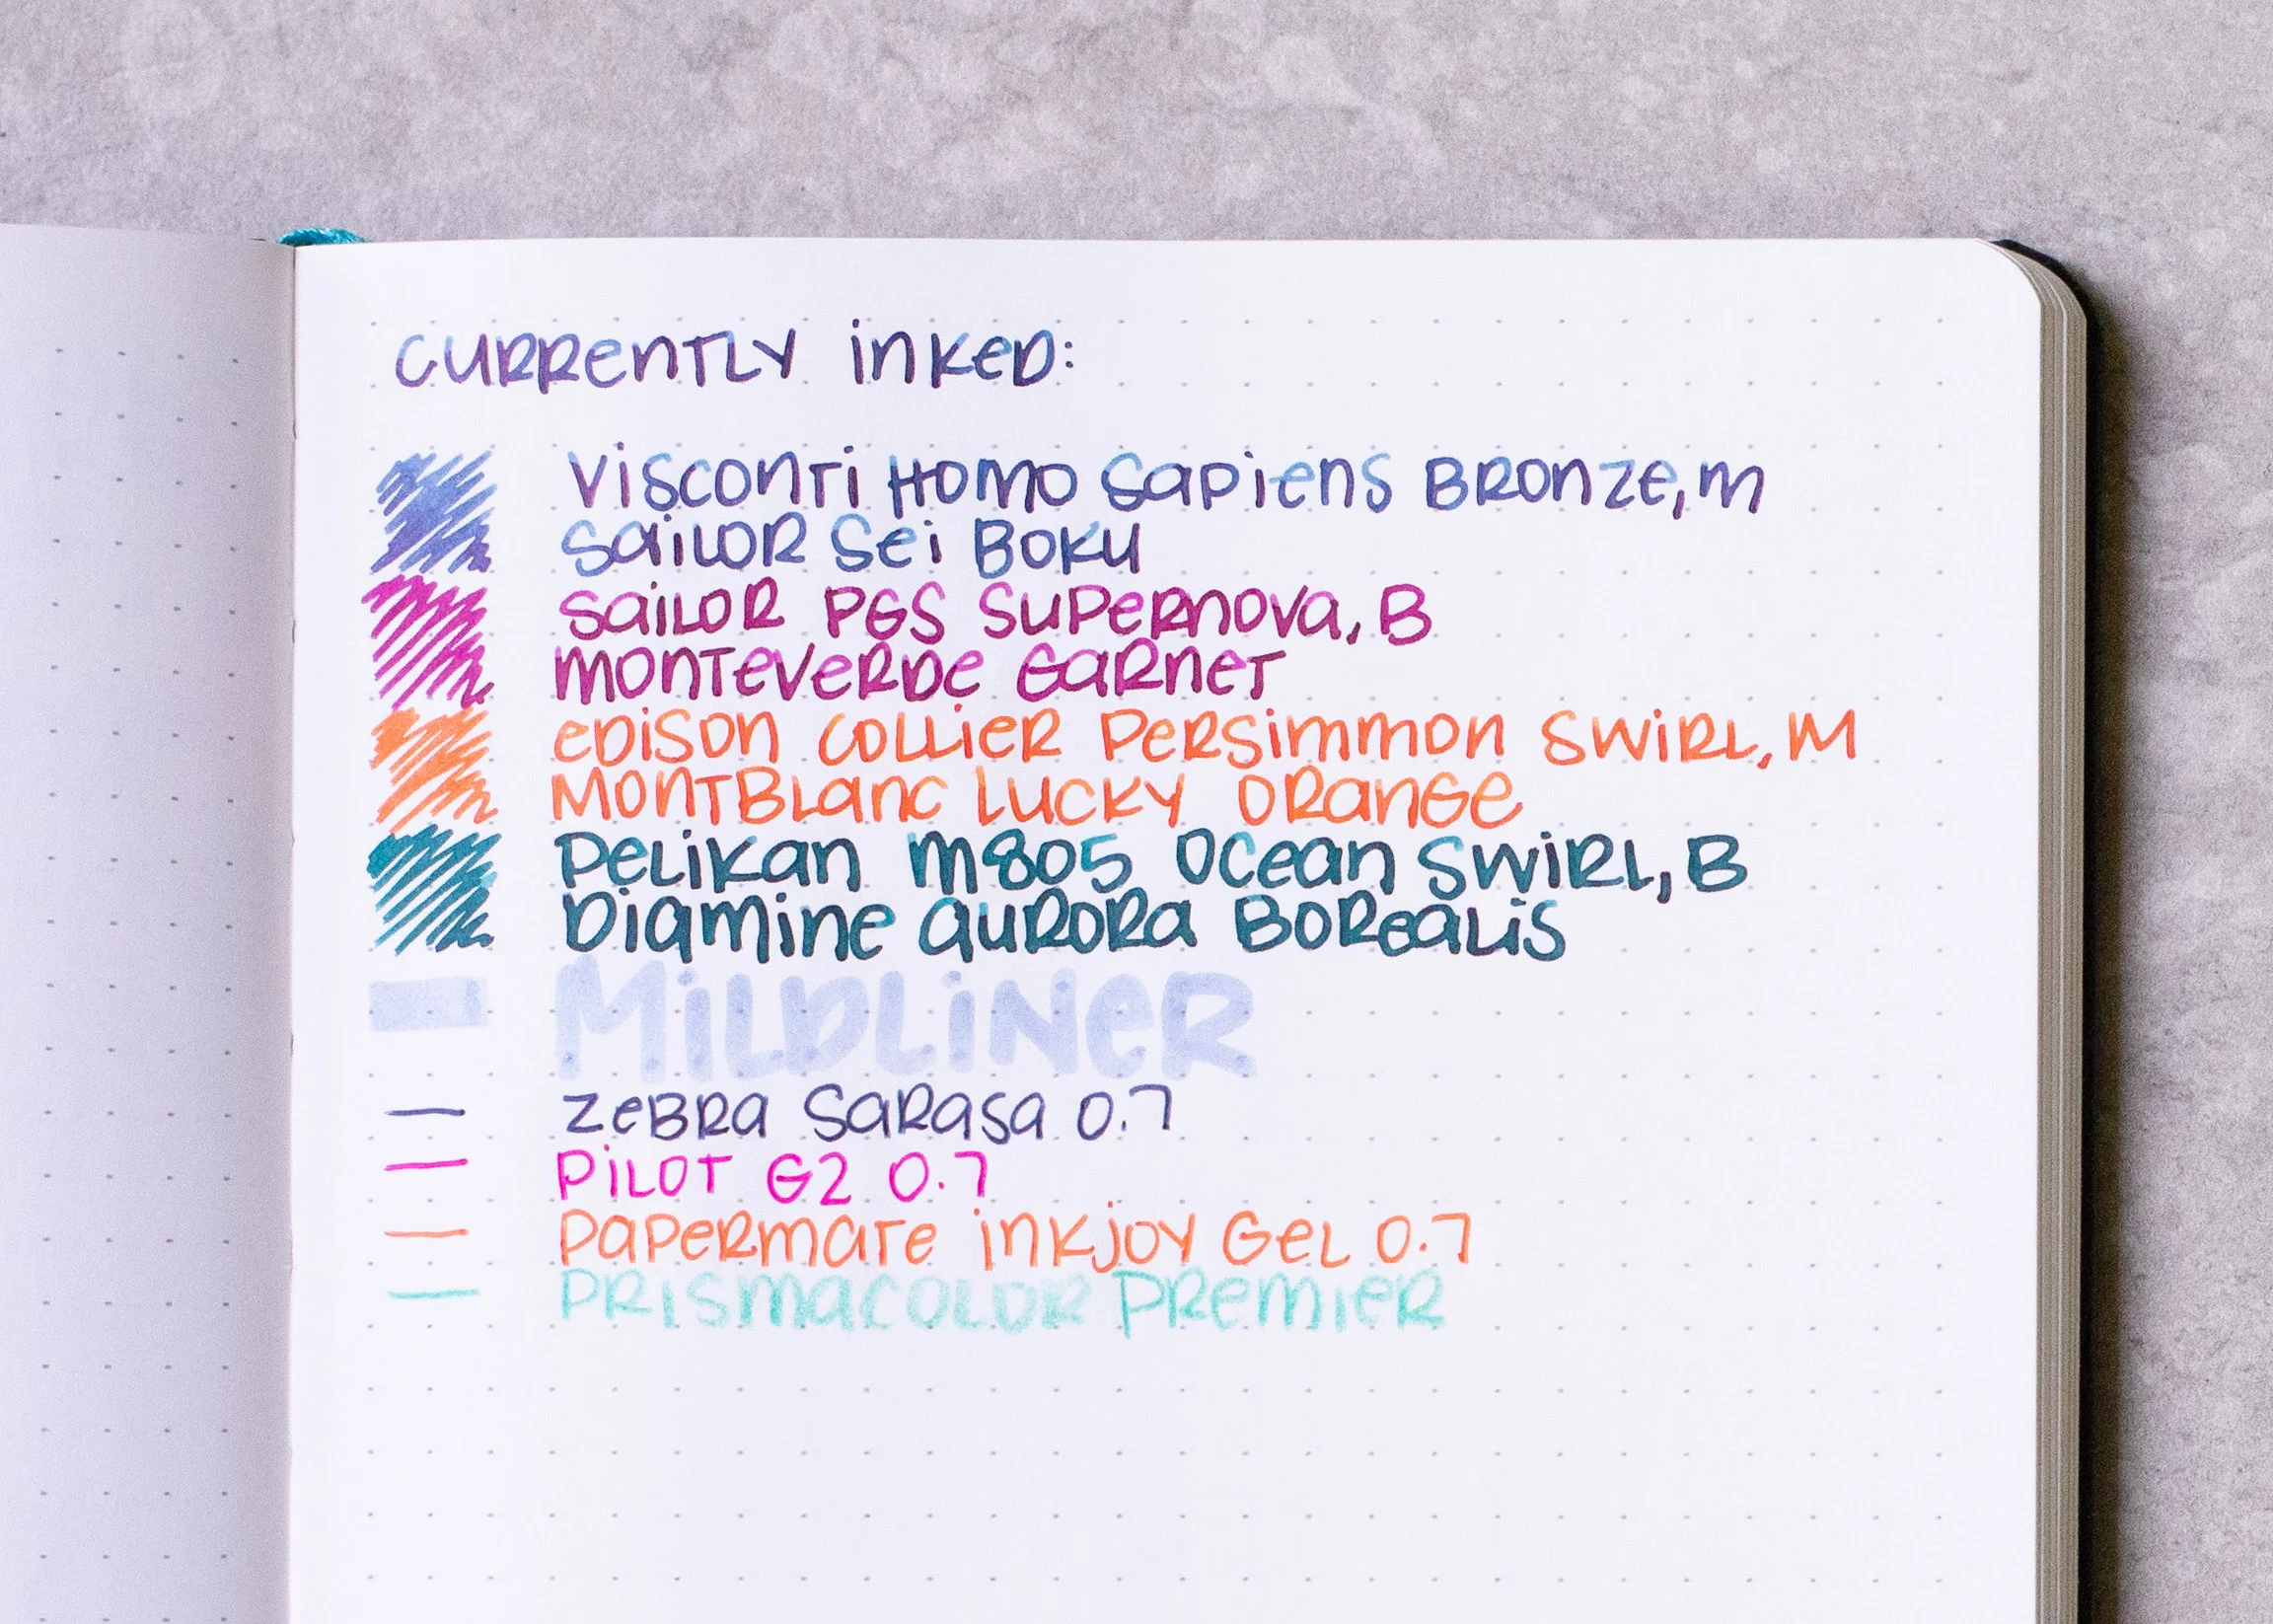 Currently inked:
Visconti Homo Sapiens Bronze, M
Sailor Sei Boku
Sailor PGS Supernova, B
Monteverde Garnet
Edison Collier Persimmon Swirl, M
Montblanc Lucky Orange
Pelikan M805 Ocean Swirl, B
Diamine Aurora Borealis
Mildliner
Zebra Sarasa 0.7
Pilot G2 0.7
Papermate Inkjoy Gel 0.7
Prismacolor Premier